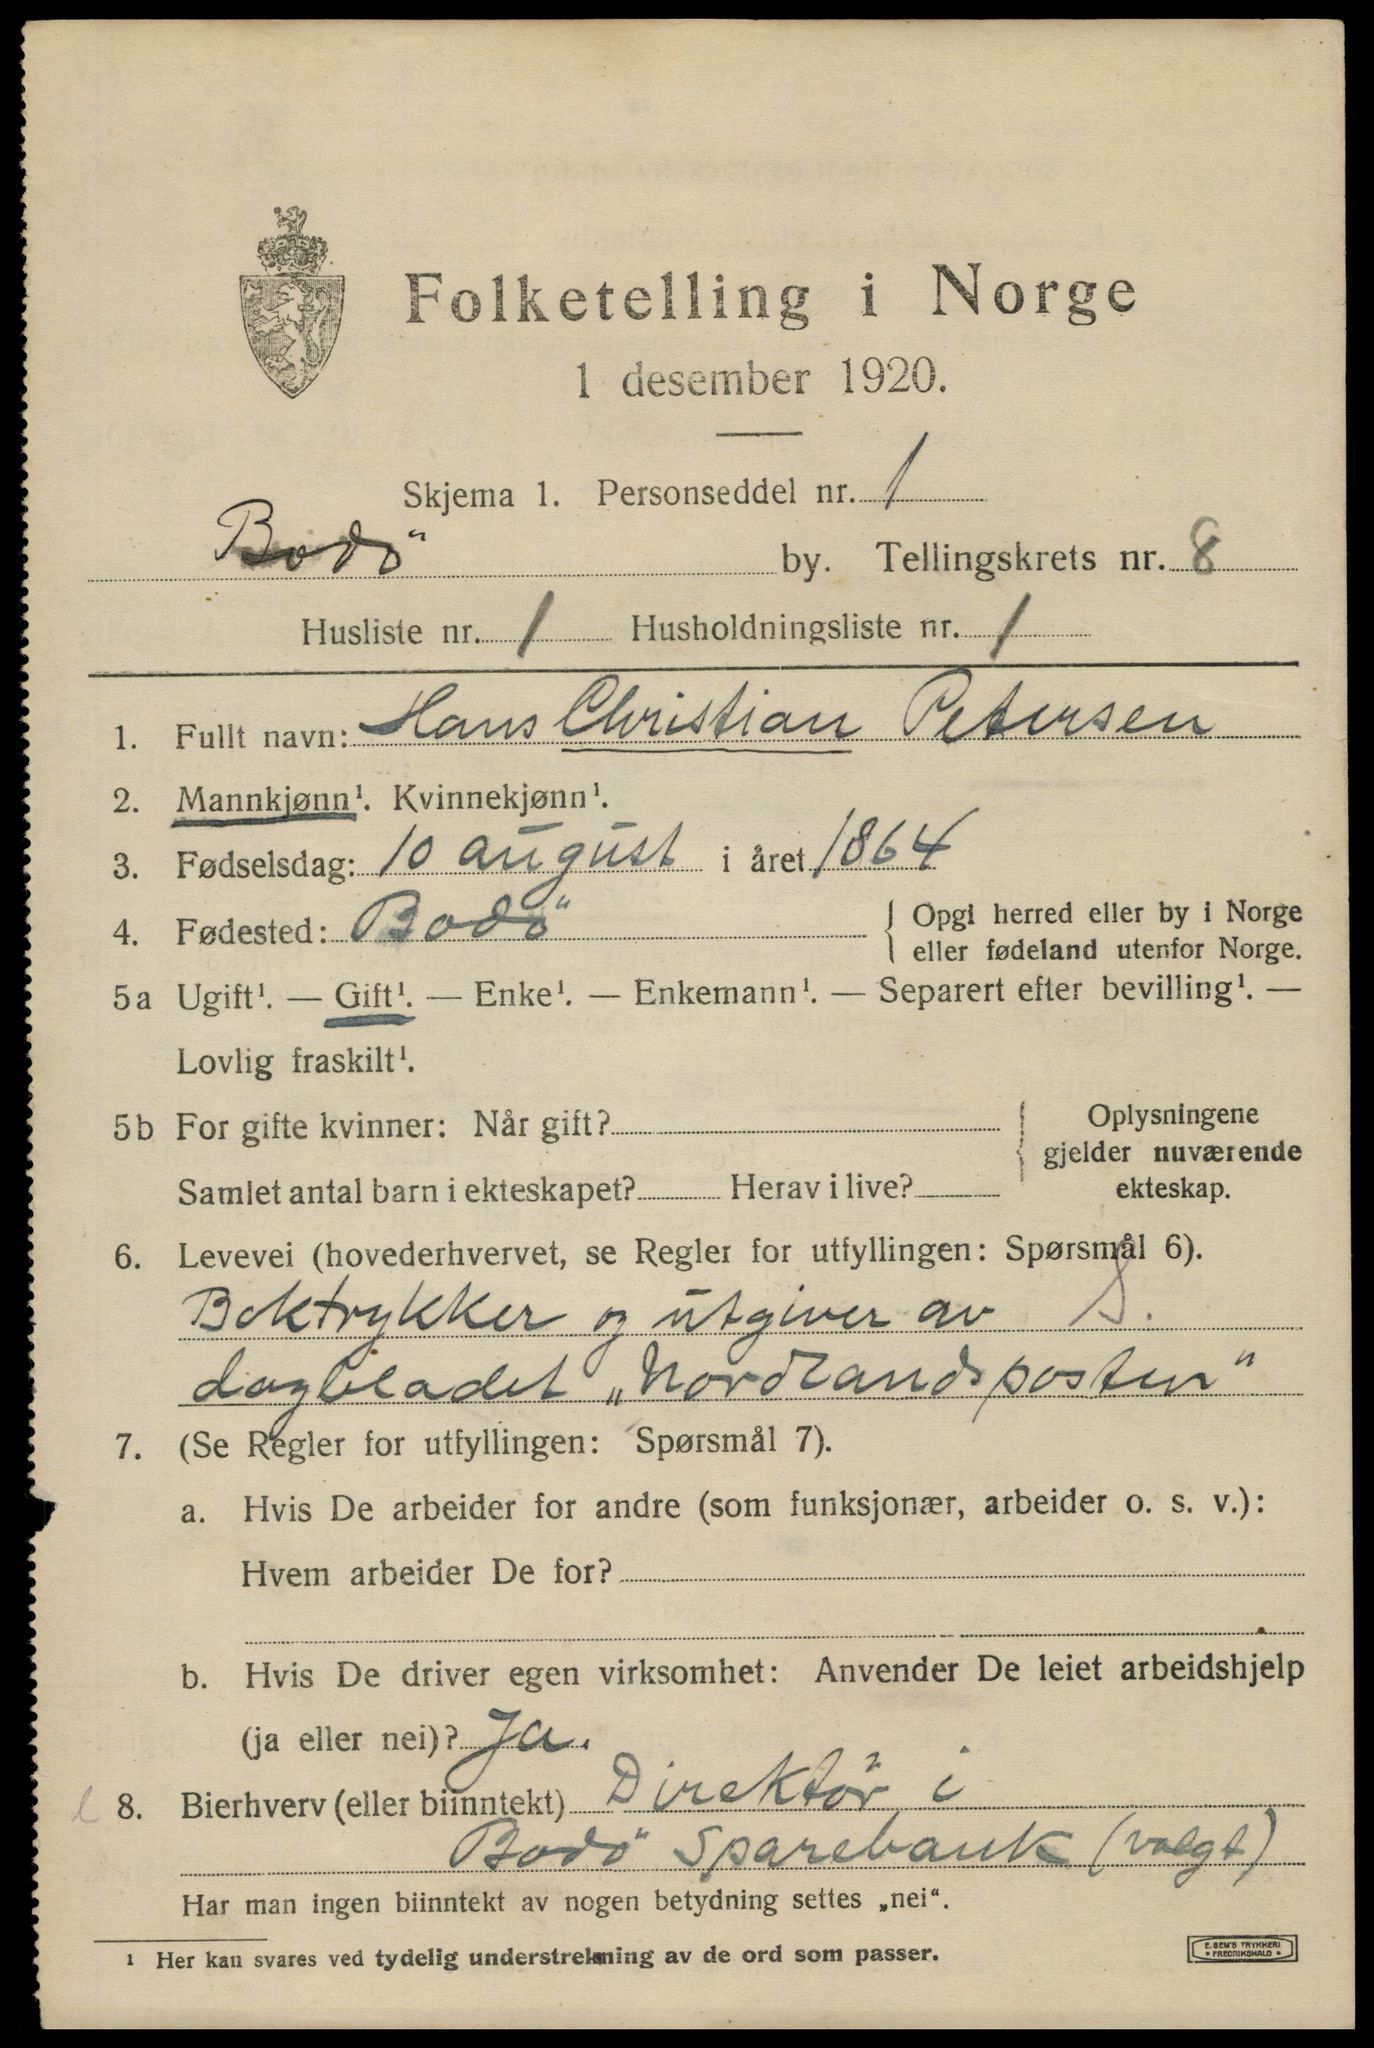 Folketelling i Norge
1 desember 1920.
Skjema 1. Personseddel nr. 1
Bodö by. Tellingskrets nr. 8
Husliste nr. 1 Husholdningsliste nr. 1
1. Fullt navn: Hans Christian Petersen
2. Mannkjønn¹. Kvinnekjønn¹.
3. Fødselsdag: 10 august i året 1864
4. Fødested: Bodö { Opgi herred eller by i Norge
eller fødeland utenfor Norge.
5a Ugift¹. — Gift¹. — Enke¹. — Enkemann¹. — Separert efter bevilling¹. —
Lovlig fraskilt¹.
5b For gifte kvinner: Når gift?
Samlet antal barn i ekteskapet? Herav i live?
Oplysningene
gjelder nuværende
ekteskap.
6. Levevei (hovederhvervet, se Regler for utfyllingen: Spørsmål 6).
Boktrykker og utgiver av S.
dagbladet „Nordlandsposten"
7. (Se Regler for utfyllingen: Spørsmål 7).
a. Hvis De arbeider for andre (som funksjonær, arbeider o. s. v.):
Hvem arbeider De for?
b. Hvis De driver egen virksomhet: Anvender De leiet arbeidshjelp
(ja eller nei)? Ja.
8. Bierhverv (eller biinntekt) Direktör i
Bodö Sparebank (valgt)
Har man ingen biinntekt av nogen betydning settes „nei“.
¹ Her kan svares ved tydelig understrekning av de ord som passer.
E. SEM'S TRYKKERI
• FREDRIKSHALD •